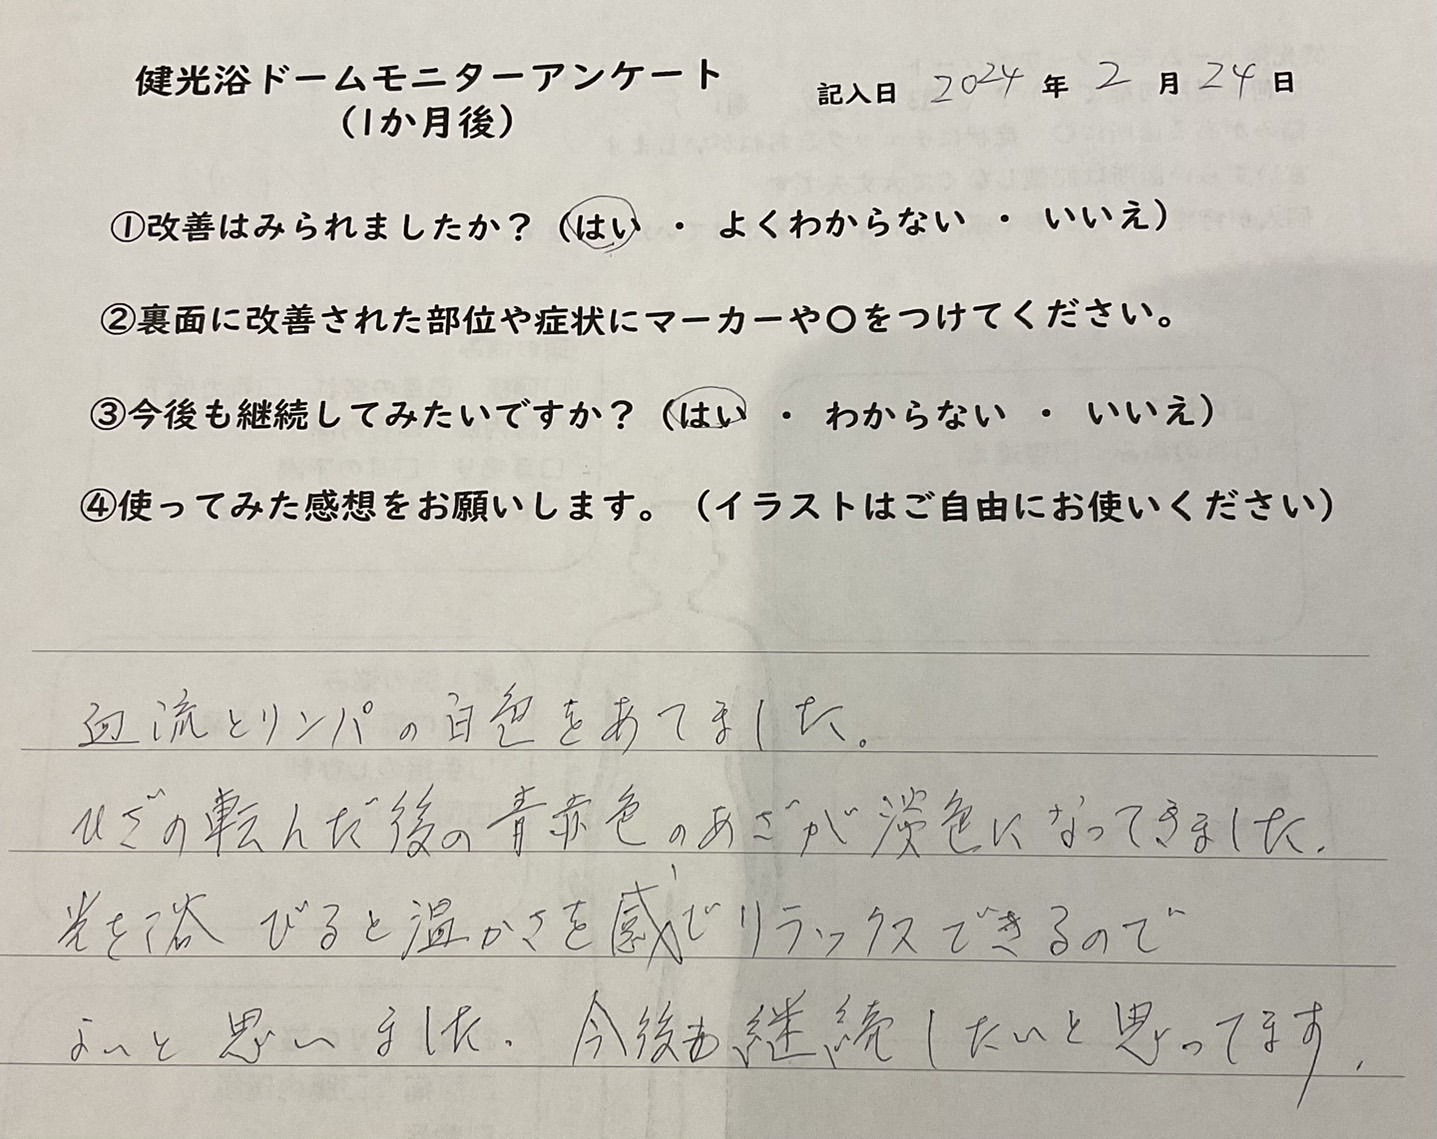 健光浴ドームモニターアンケート
(1か月後)
記入日 2024 年 2 月 24 日
①改善はみられましたか？（はい ・ よくわからない ・ いいえ）
②裏面に改善された部位や症状にマーカーや〇をつけてください。
③今後も継続してみたいですか？（はい ・ わからない ・ いいえ）
④使ってみた感想をお願いします。（イラストはご自由にお使いください）
血流とリンパの白色をあてました。
ひざの転んだ後の青赤色のあざが淡色になってきました.
光を浴びると温かさを感じリラックスできるので
よいと思いました. 今後も継続したいと思ってます.